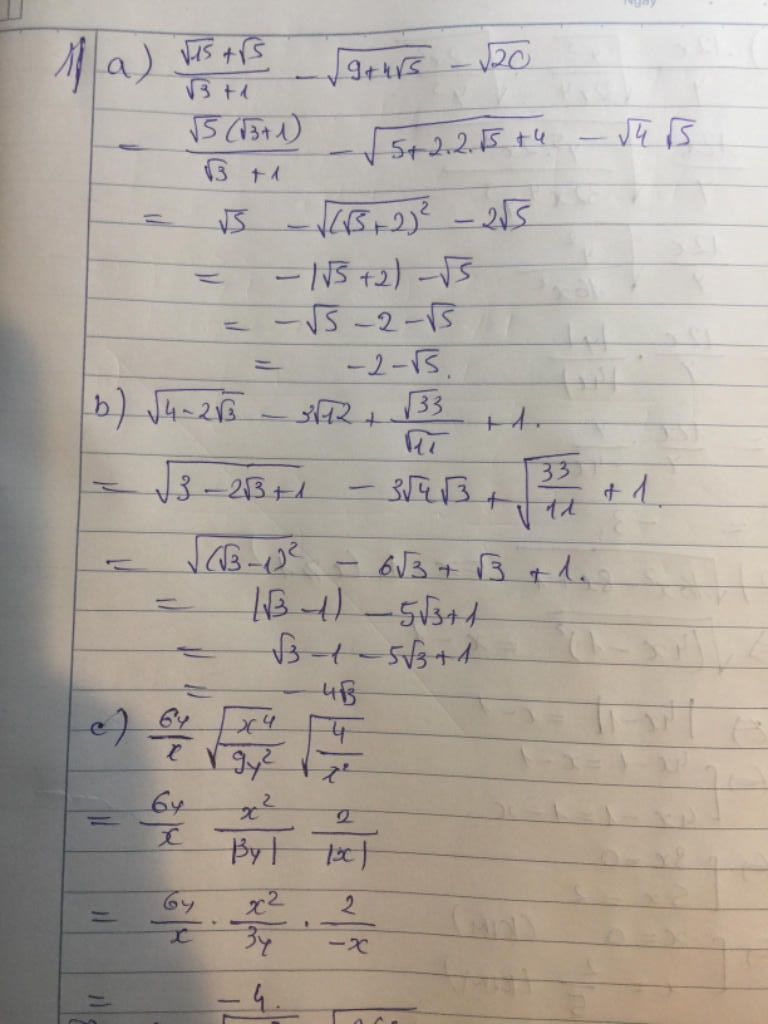 Ngày
1) a) (√15 + √5)/(√3 + 1) - √(9+4√5) - √20
= √5(√3+1)/(√3 + 1) - √(5+2.2.√5+4) - √4 √5
= √5 - √((√5+2)²) - 2√5
= -|√5+2| - √5
= -√5 - 2 - √5
= -2 - √5.
b) √(4-2√3) - 3√12 + √33/√11 + 1.
= √(3-2√3+1) - 3√4 √3 + √(33/11) + 1.
= √((√3-1)²) - 6√3 + √3 + 1.
= |√3 - 1| - 5√3+1
= √3 - 1 - 5√3+1
= - 4√3
c) 6y/x √(x⁴/9y²) √(4/x²)
= 6y/x x²/|3y| 2/|x|
= 6y/x . x²/3y . 2/-x
= - 4.